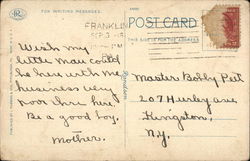 FOR WRITING MESSAGES.
FRANKLIN
POST CARD
THIS SIDE IS FOR THE ADDRESS
Wish my
little man could
be here with me
business very
poor thru here.
Be a good boy.
Mother.
Master Bobby
207 Hurley ave,
Kingston,
N.Y.